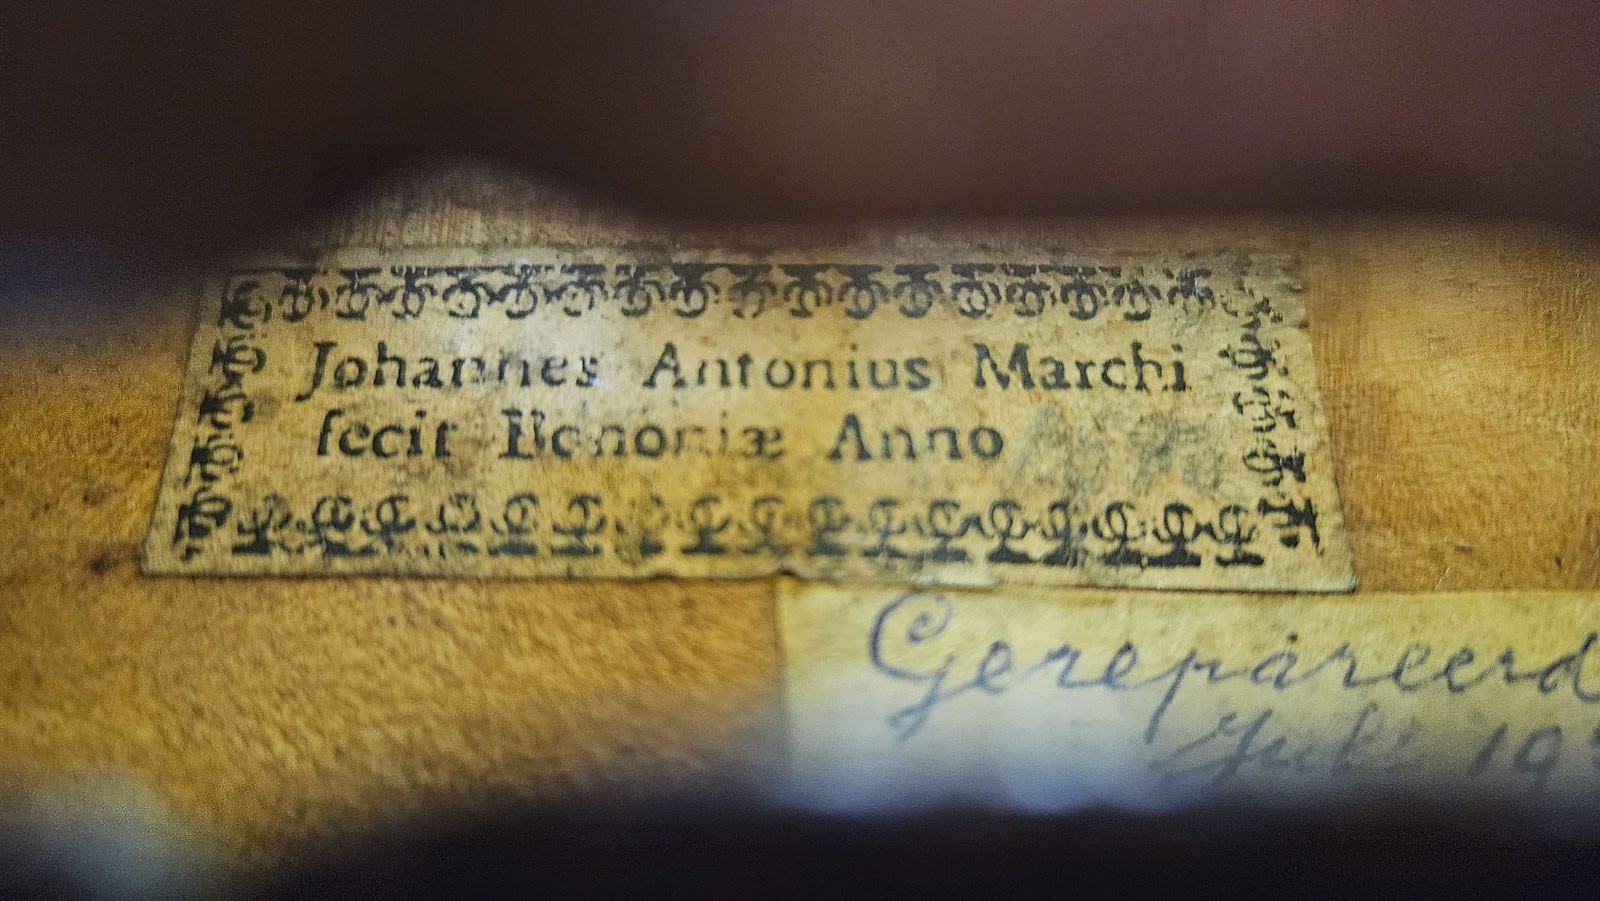 Johannes Antonius Marchi
fecit Bononiæ Anno
Gerepareerd
Juli 19